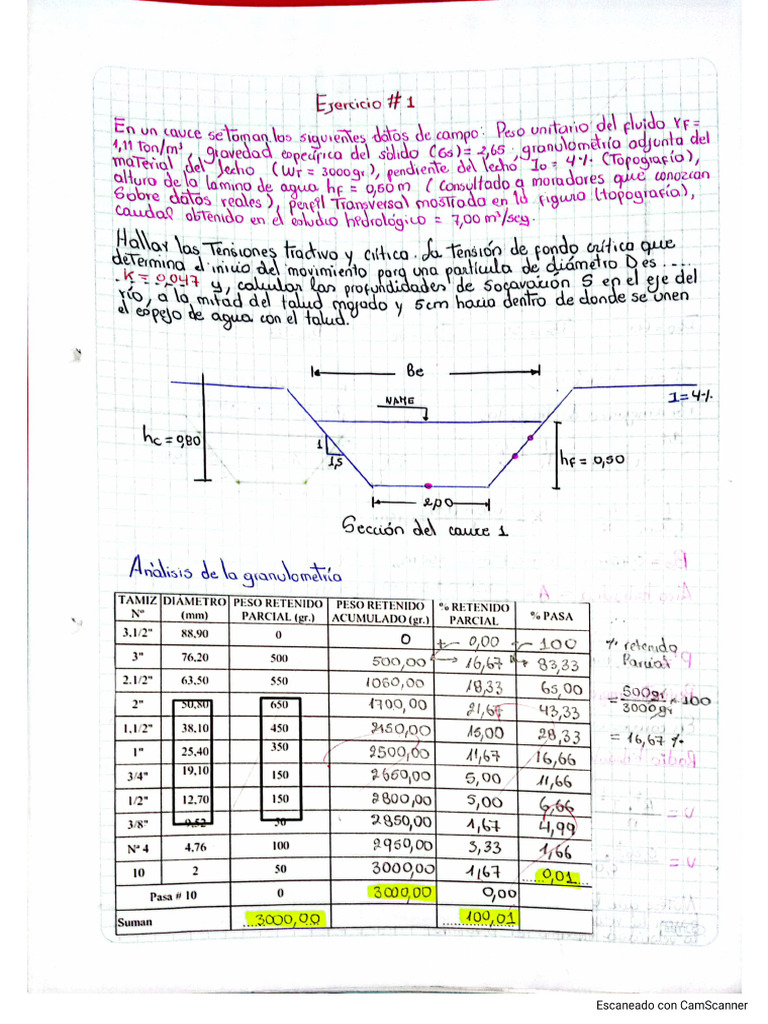 Ejercicio # 1
En un cauce se toman los siguientes datos de campo: Peso unitario del fluido γF =
1,11 Ton/m³, gravedad específica del sólido (Gs) = 2,65, granulometría adjunta del
material del lecho (WT = 3000gr), pendiente del lecho Io = 4% (Topografía),
altura de la lamina de agua hF = 0,50m (Consultado a moradores que conozcan
Sobre datos reales), perfil Transversal mostrado en la figura (topografía),
caudal obtenido en el estudio hidrológico = 7,00 m³/seg.
Hallar las Tensiones tractiva y crítica. La Tensión de fondo crítica que
determina el inicio del movimiento para una partícula de diámetro D es ....
K = 0,047 y, calcular las profundidades de socavación S en el eje del
río, a la mitad del talud mojado y 5cm hacia dentro de donde se unen
el espejo de agua con el talud.
Be
NAME
I=4%
hc = 0,80
1
1,5
hF = 0,50
2,00
Sección del cauce 1
Análisis de la granulometría
TAMIZ Nº DIÁMETRO (mm) PESO RETENIDO PARCIAL (gr.) PESO RETENIDO ACUMULADO (gr.) % RETENIDO PARCIAL % PASA
3.1/2" 88,90 0 0 0,00 100
3" 76,20 500 500,00 16,67 83,33
2.1/2" 63,50 550 1050,00 18,33 65,00
2" 50,80 650 1700,00 21,67 43,33
1.1/2" 38,10 450 2150,00 15,00 28,33
1" 25,40 350 2500,00 11,67 16,66
3/4" 19,10 150 2650,00 5,00 11,66
1/2" 12,70 150 2800,00 5,00 6,66
3/8" 9,52 50 2850,00 1,67 4,99
Nº 4 4.76 100 2950,00 3,33 1,66
10 2 50 3000,00 1,67 0,01
Pasa # 10 0 3000,00 0,00
Suman 3000,00 100,01
% retenido
Parcial
= 500gr / 3000gr × 100
= 16,67 %
Escaneado con CamScanner